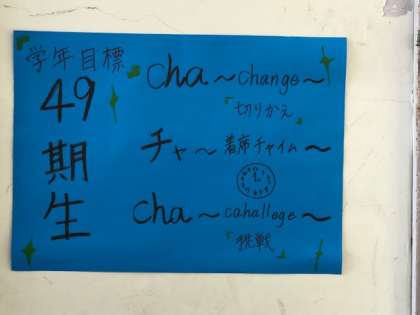 学年目標
49
期
生
cha～change～
『切りかえ』
チャ～着席チャイム～
cha～cahallege～
『挑戦』